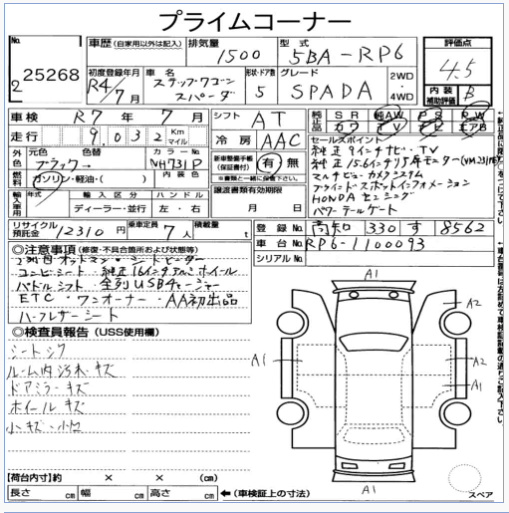 プライムコーナー
No.
2 25268
車歴 (自家用以外は記入)
排気量 1500
型式 5BA-RP6
評価点 4.5
初度登録年月 R4/7月
車名 ステップワゴン スパーダ
形状・ドア数 5
グレード SPADA
2WD・4WD
内装補助評価 B
車検 R7年7月
シフト AT
純正品 SR 純AW PS RW
カワ TV ナビ エアB
走行 9032 Km マイル
冷房 AAC
セールスポイント
外色 元色 ブラック 色替
カラーNo. NH731P
新車整備手帳(保証書付) 有 無
※書類と一緒に保管下さい
純正 15.6インチリア席モニター(VM-231
マルチビューカメラシステム
ブラインドスポットインフォメーション
HONDAセンシング
パワーテールゲート
燃料 ガソリン・軽油・( )
内装色
輸入車用 年式 輸入区分 ハンドル
ディーラー・並行 左・右
譲渡書類有効期限
月 日
リサイクル預託金 12310円
乗車定員 7人
積載量 t
登録No. 高知 330 す 8562
車台No. RP6-1100093
シリアルNo.
◎注意事項 (修復・不具合箇所および状態等)
2列目オットマン・シートヒーター
コンビシート・純正16インチアルミホイール
パドルシフト・全列USBチャージャー
ETC・ワンオーナー・AA初出品
ハーフレザーシート
◎検査員報告 (USS使用欄)
シートシワ
ルーム内汚れキズ
ドアミラーキズ
ホイールキズ
小キズ・小凹
A1
A2
A1
A2
A1
A1
【荷台内寸】約 × × (cm)
長さ cm 幅 cm 高さ cm ←(車検証上の寸法)
スペア